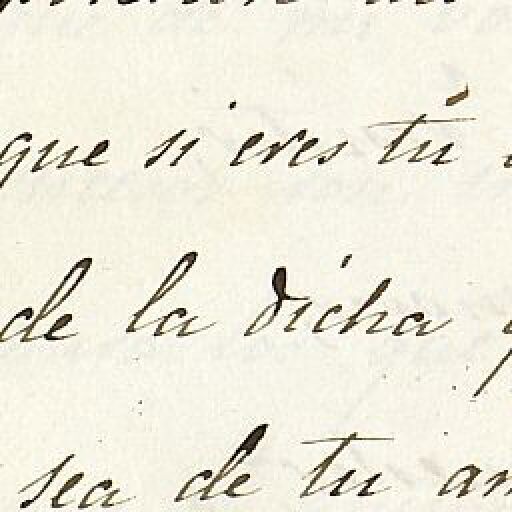 que si eres tú
de la dicha
sea de tu